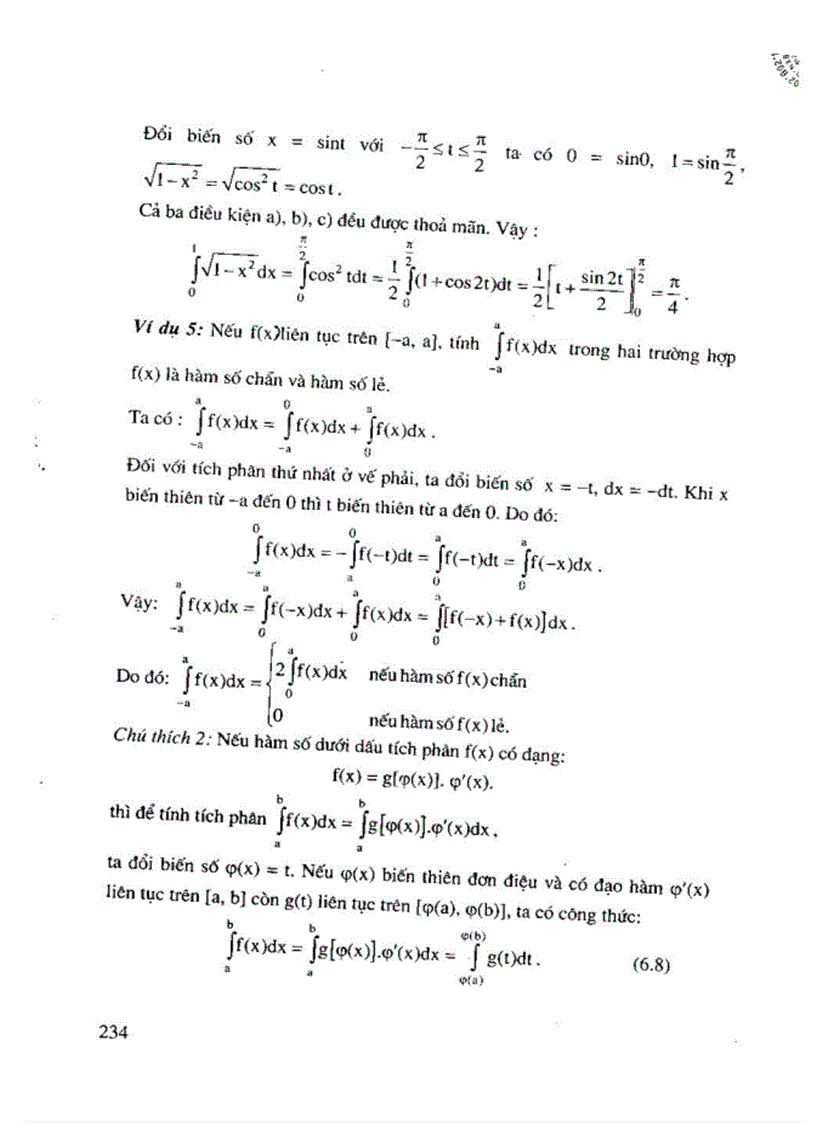 Đổi biến số x = sint với $-\frac{\pi}{2} \le t \le \frac{\pi}{2}$ ta có 0 = sin0, $1 = \sin\frac{\pi}{2}$,
$\sqrt{1-x^2} = \sqrt{\cos^2 t} = \cos t$.
Cả ba điều kiện a), b), c) đều được thoả mãn. Vậy :
$\int_0^1 \sqrt{1-x^2}dx = \int_0^{\frac{\pi}{2}} \cos^2 tdt = \frac{1}{2}\int_0^{\frac{\pi}{2}} (1+\cos 2t)dt = \frac{1}{2}\left[t+\frac{\sin 2t}{2}\right]_0^{\frac{\pi}{2}} = \frac{\pi}{4}$.
Ví dụ 5: Nếu f(x)liên tục trên [–a, a], tính $\int_{-a}^{a} f(x)dx$ trong hai trường hợp
f(x) là hàm số chẵn và hàm số lẻ.
Ta có : $\int_{-a}^{a} f(x)dx = \int_{-a}^{0} f(x)dx + \int_0^a f(x)dx$.
Đối với tích phân thứ nhất ở vế phải, ta đổi biến số x = –t, dx = –dt. Khi x
biến thiên từ –a đến 0 thì t biến thiên từ a đến 0. Do đó:
$\int_{-a}^{0} f(x)dx = -\int_a^0 f(-t)dt = \int_0^a f(-t)dt = \int_0^a f(-x)dx$.
Vậy: $\int_{-a}^{a} f(x)dx = \int_0^a f(-x)dx + \int_0^a f(x)dx = \int_0^a [f(-x)+f(x)]dx$.
Do đó: $\int_{-a}^{a} f(x)dx = \begin{cases} 2\int_0^a f(x)dx & \text{nếu hàm số f(x) chẵn} \\ 0 & \text{nếu hàm số f(x) lẻ.} \end{cases}$
Chú thích 2: Nếu hàm số dưới dấu tích phân f(x) có dạng:
f(x) = g[φ(x)]. φ′(x).
thì để tính tích phân $\int_a^b f(x)dx = \int_a^b g[\varphi(x)].\varphi'(x)dx$,
ta đổi biến số φ(x) = t. Nếu φ(x) biến thiên đơn điệu và có đạo hàm φ′(x)
liên tục trên [a, b] còn g(t) liên tục trên [φ(a), φ(b)], ta có công thức:
$\int_a^b f(x)dx = \int_a^b g[\varphi(x)].\varphi'(x)dx = \int_{\varphi(a)}^{\varphi(b)} g(t)dt$. (6.8)
234